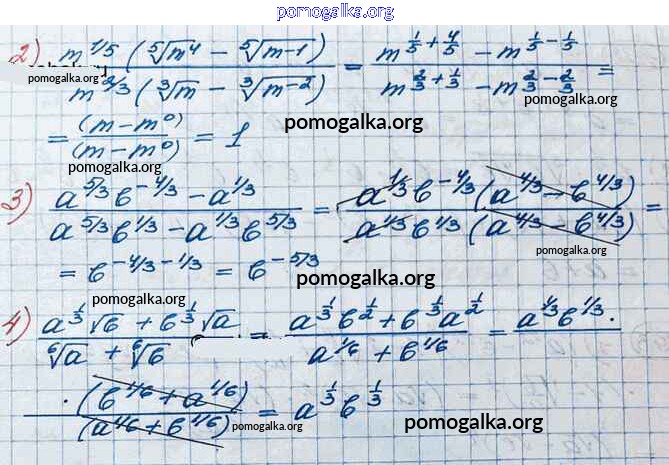 pomogalka.org
2) m^{1/5} (\sqrt[5]{m^4} - \sqrt[5]{m-1}) / m^{2/3} (\sqrt[3]{m} - \sqrt[3]{m-2}) = m^{\frac{1}{5}+\frac{4}{5}} - m^{\frac{1}{5}-\frac{1}{5}} / m^{\frac{2}{3}+\frac{1}{3}} - m^{\frac{2}{3}-\frac{2}{3}} =
pomogalka.org
pomogalka.org
= (m - m^0) / (m - m^0) = 1
pomogalka.org
pomogalka.org
3) a^{5/3} в^{-4/3} - a^{1/3} / a^{5/3} в^{1/3} - a^{1/3} в^{5/3} = a^{1/3} в^{-4/3} (a^{4/3} - в^{4/3}) / a^{1/3} в^{1/3} (a^{4/3} - в^{4/3}) =
pomogalka.org
= в^{-4/3-1/3} = в^{-5/3}
pomogalka.org
pomogalka.org
4) a^{\frac{1}{3}} \sqrt{в} + в^{\frac{1}{3}} \sqrt{a} / \sqrt[6]{a} + \sqrt[6]{в} = a^{\frac{1}{3}} в^{\frac{1}{2}} + в^{\frac{1}{3}} a^{\frac{1}{2}} / a^{1/6} + в^{1/6} = a^{1/3} в^{1/3} ·
pomogalka.org
· (в^{1/6} + a^{1/6}) / (a^{1/6} + в^{1/6}) = a^{\frac{1}{3}} в^{\frac{1}{3}}
pomogalka.org
pomogalka.org